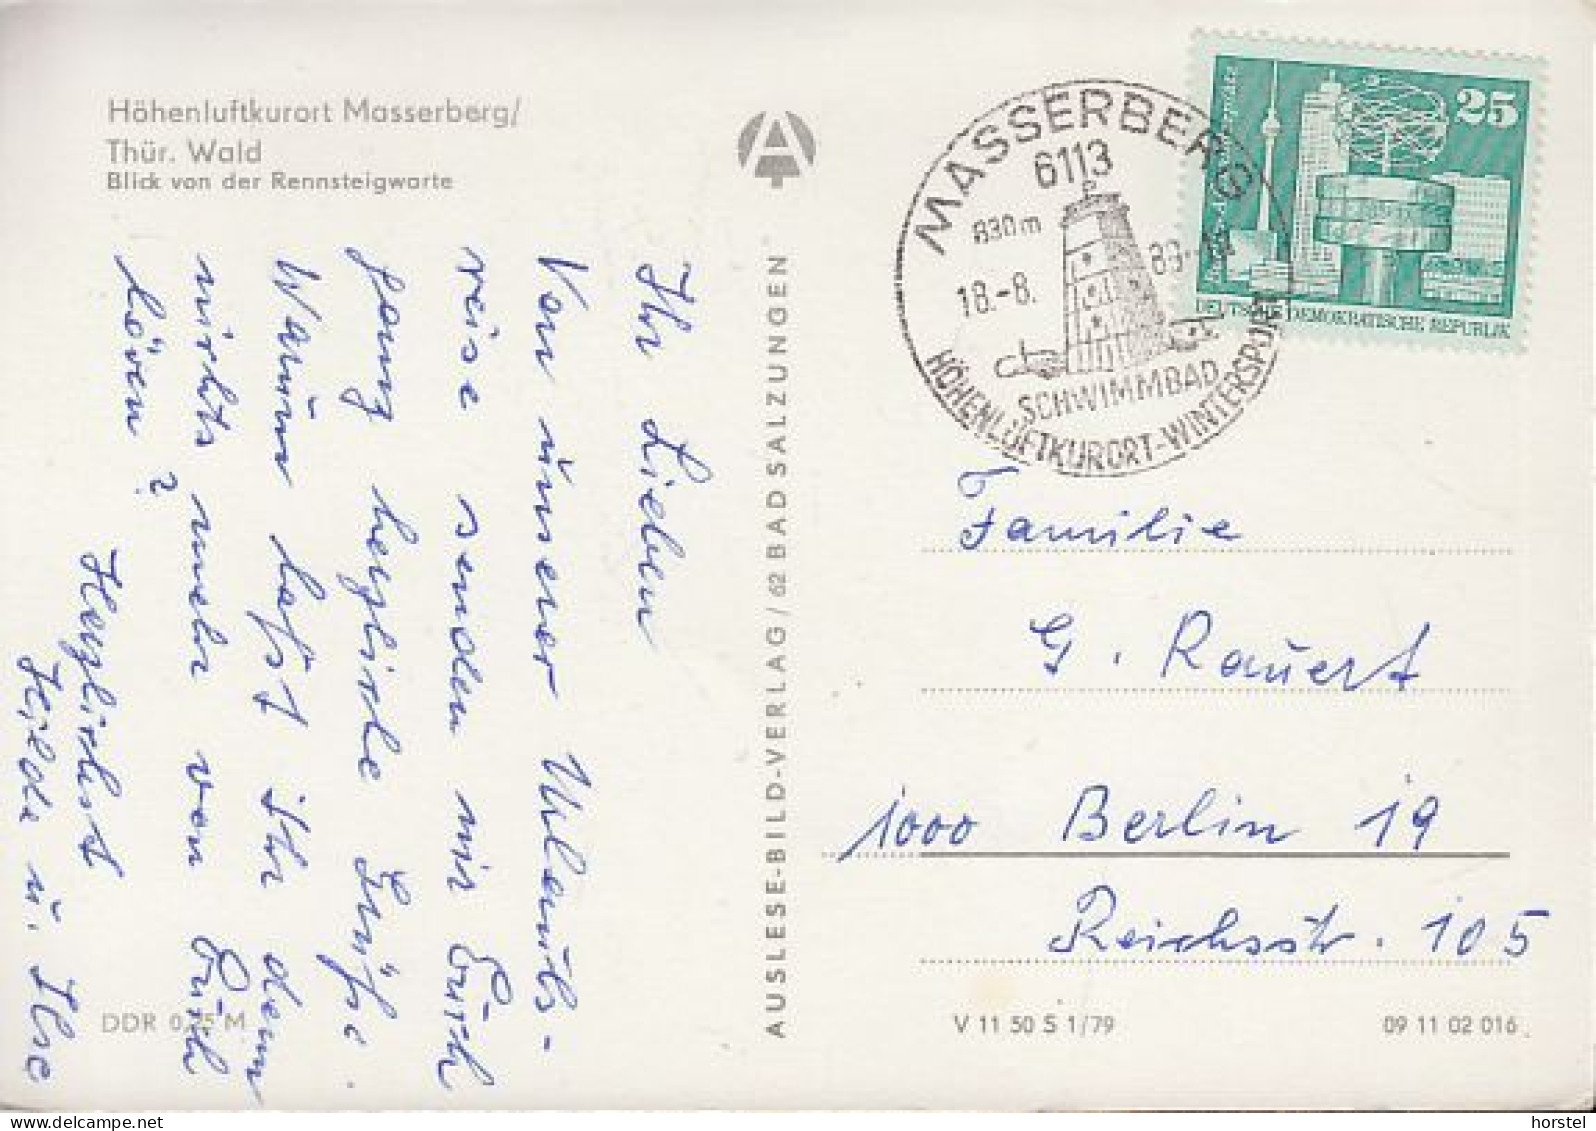 Höhenluftkurort Masserberg/
Thür. Wald
Blick von der Rennsteigwarte
Ihr Lieben
Von unser Urlaubs-
reise senden wir Euch
ganz herzliche Grüße.
Warum laßt Ihr denn
nichts mehr von Euch
hören?
Herzlichst
Hilde u. Ilse
DDR 0,25 M
AUSLESE-BILD-VERLAG / 62 BAD SALZUNGEN
MASSERBERG
6113
830m
18.-8.
SCHWIMMBAD
HÖHENLUFTKURORT-WINTERSPORT
25
DEUTSCHE DEMOKRATISCHE REPUBLIK
Familie
G. Rauert
1000 Berlin 19
Reichsstr. 105
V 11 50 S 1/79
09 11 02 016
horstel
www.delcampe.net